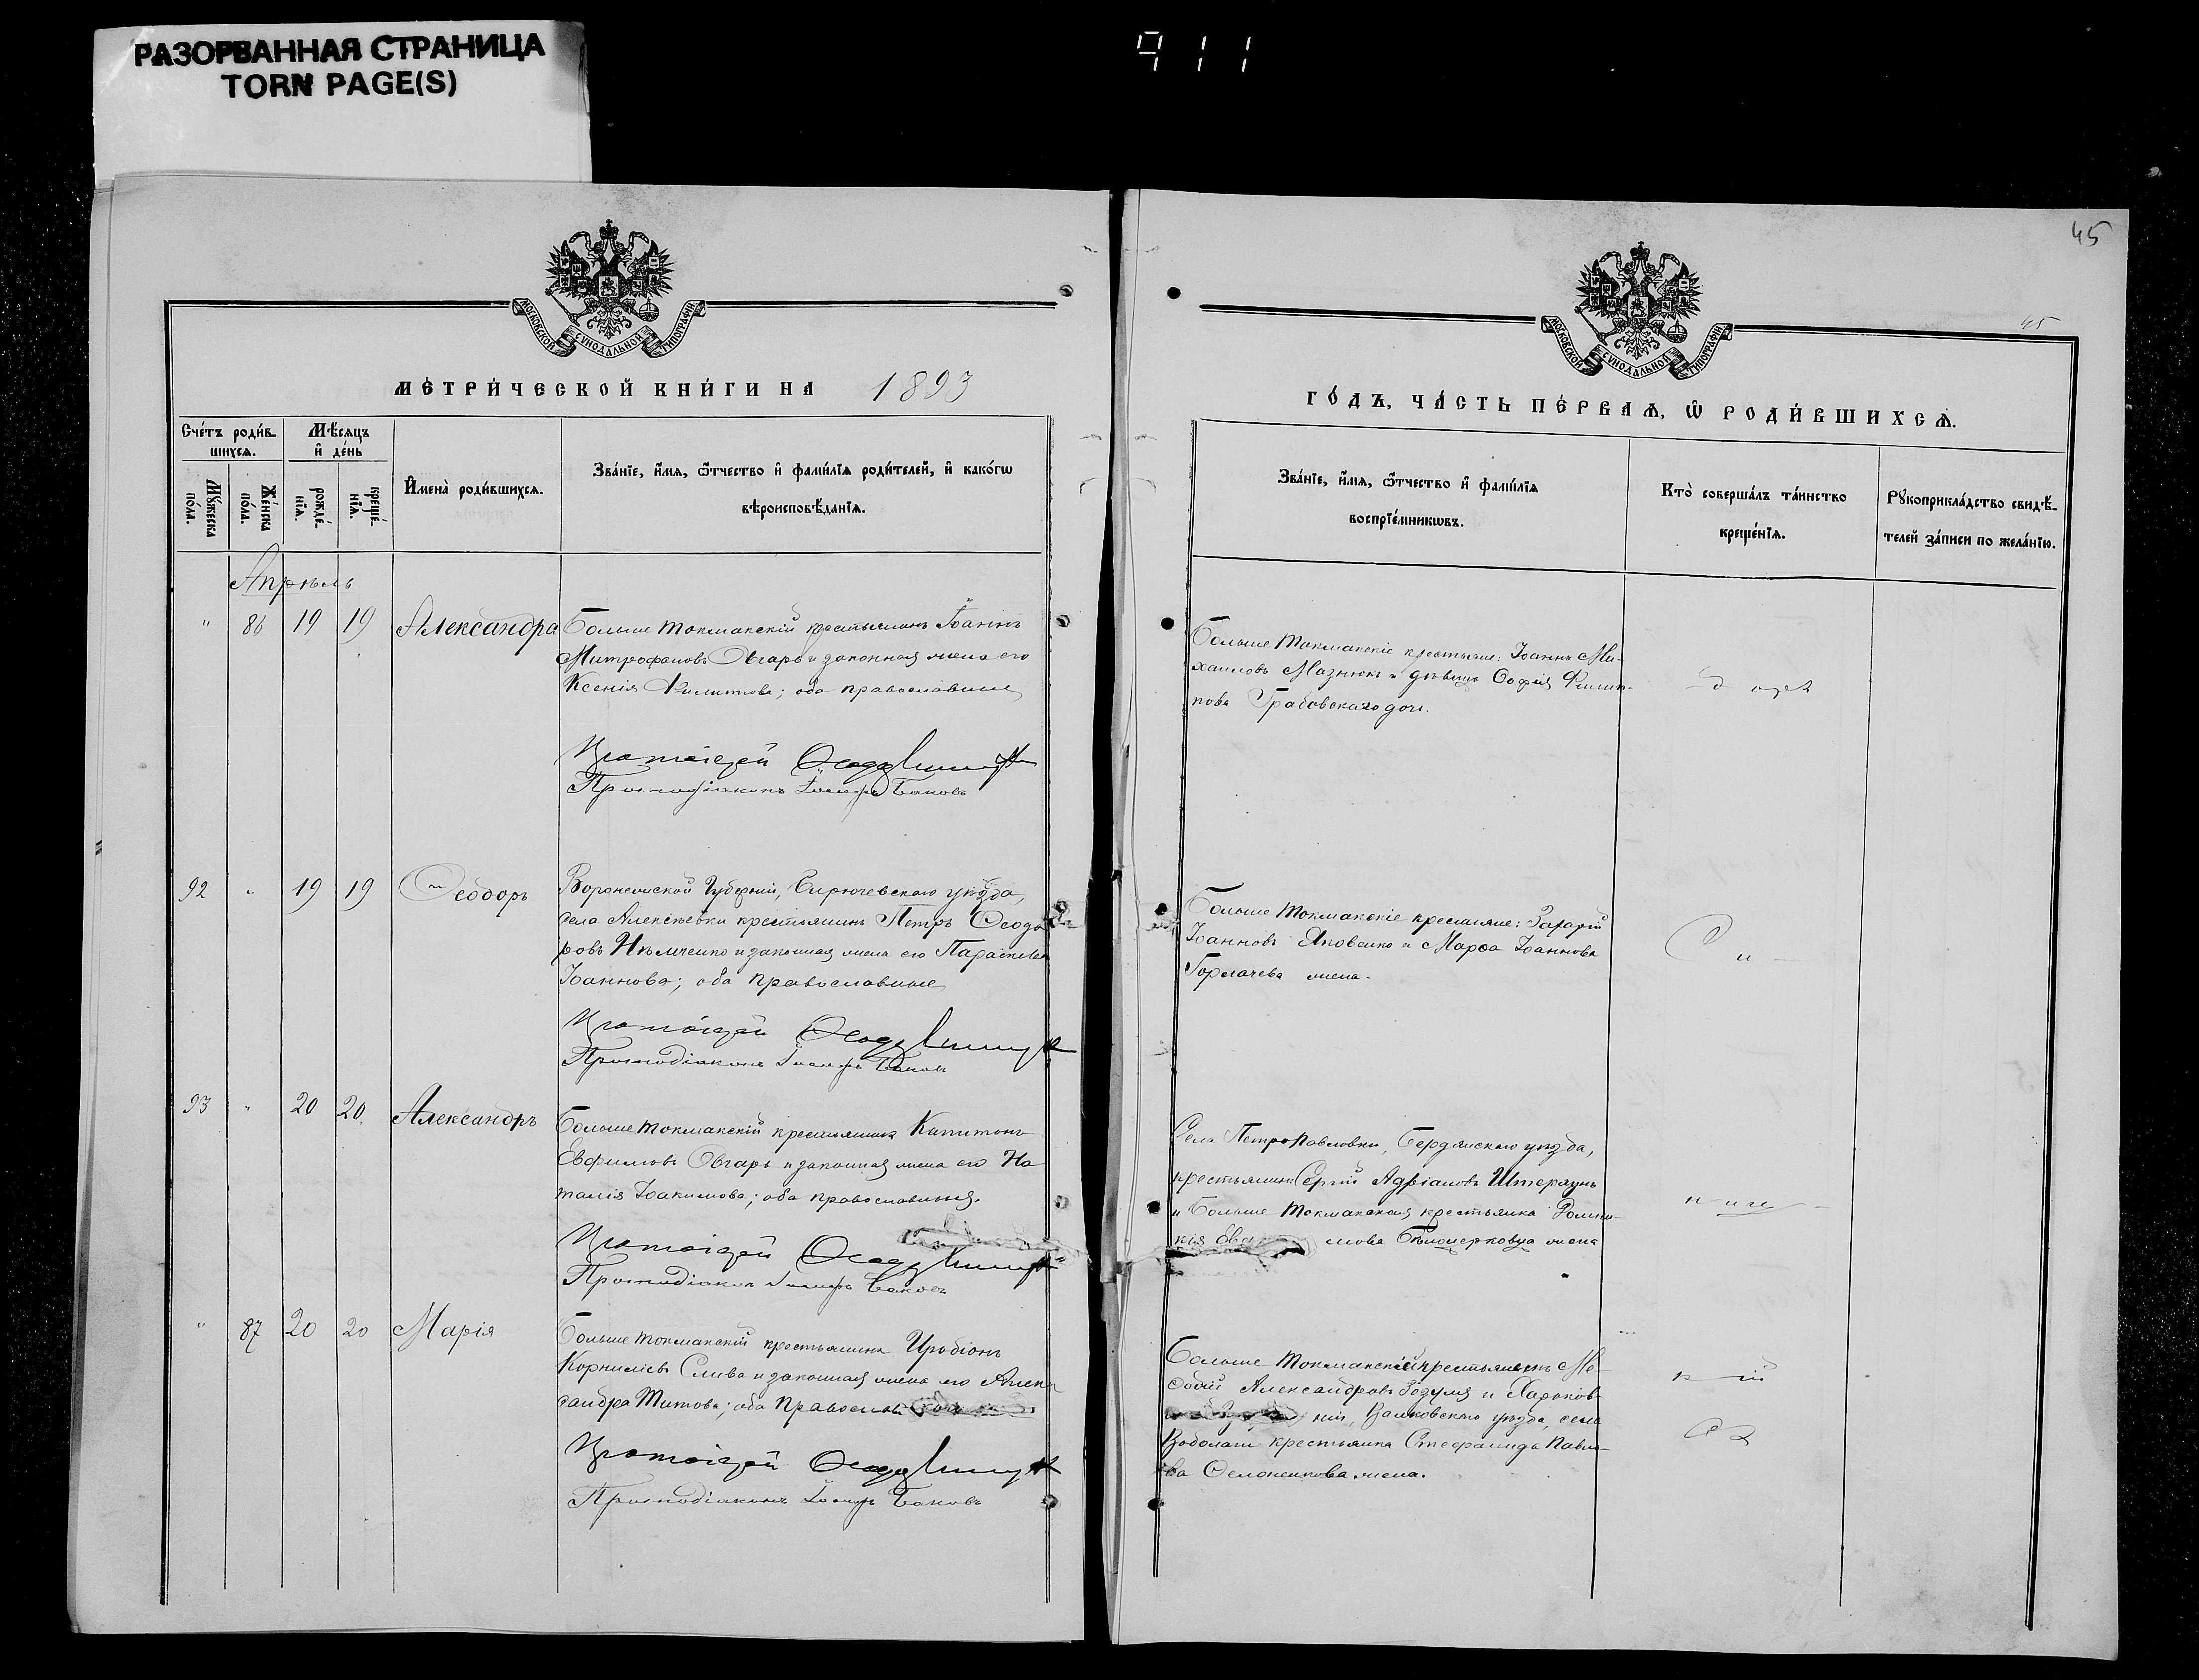 РАЗОРВАННАЯ СТРАНИЦА
TORN PAGE(S)
911
45
45
МОСКОВСКОЙ СѴНОДАЛЬНОЙ ТИПОГРАФІИ
МЕТРИ́ЧЕСКОЙ КНИ́ГИ НА 1893
Сче́тъ роди́в-
шихся.
Мѣ́сяцъ
и҆ де́нь
Мꙋ́жеска
по́ла.
Же́нска
по́ла.
рожде́-
нїя.
креще́-
нїя.
И҆мена̀ роди́вшихся.
Зва́нїе, и҆́мя, ѻ҆́тчество и҆ фами́лїя роди́телей, и҆ како́гѡ
вѣроисповѣ́данїя.
Апрѣль
" 86 19 19 Александра
Больше Токмакскій крестьянинъ Іоаннъ
Митрофановъ Овчаръ и законная жена его
Ксенія Филиппова; оба православные
Протоіерей Ѳеодоръ
Протодіаконъ Іосифъ Баковъ
92 " 19 19 Ѳеодоръ
Воронежской Губерніи, Бирюченскаго уѣзда,
села Алексѣевки крестьянинъ Петръ Ѳеодо-
ровъ Нѣмченко и законная жена его Параскева
Іоаннова; оба православные
Протоіерей Ѳеодоръ
Протодіаконъ Іосифъ Баковъ
93 " 20 20 Александръ
Больше Токмакскій крестьянинъ Капитонъ
Евфимовъ Овчаръ и законная жена его На-
талія Іоакимова; оба православные.
Протоіерей Ѳеодоръ
Протодіаконъ Іосифъ Баковъ
" 87 20 20 Марія
Больше Токмакскій крестьянинъ Иродіонъ
Корниліевъ Слива и законная жена его Алек-
сандра Титова; оба православ
Протоіерей Ѳеодоръ
Протодіаконъ Іосифъ Баковъ
МОСКОВСКОЙ СѴНОДАЛЬНОЙ ТИПОГРАФІИ
ГО́ДЪ, ЧА́СТЬ ПЕ́РВАЯ, Ѡ҆ РОДИ́ВШИХСЯ.
Зва́нїе, и҆́мя, ѻ҆́тчество и҆ фами́лїя
воспрїе́мникѡвъ.
Кто̀ соверша́лъ та́инство
креще́нїя.
Рꙋкоприкла́дство свидѣ́-
телей за́писи по жела́нїю.
Больше Токмакскіе крестьяне: Іоаннъ Ми-
хаиловъ Мазнюкъ и дѣвица Софія Филип-
пова Грабовскаго дочь.
Больше Токмакскіе крестьяне: Захарій
Іоанновъ Яковенко и Марѳа Іоаннова
Горлачева жена.
Села Петропавловки, Бердянскаго уѣзда,
крестьянинъ Сергій Адріановъ Штерзунъ
и Больше Токмакская крестьянка
мова Бѣлоцерковца жена
Больше Токмакскій крестьянинъ Ме-
ѳодій Александровъ и Харьков-
ніи, Валковскаго уѣзда, села
крестьянка Стефанида Павло-
ва жена.